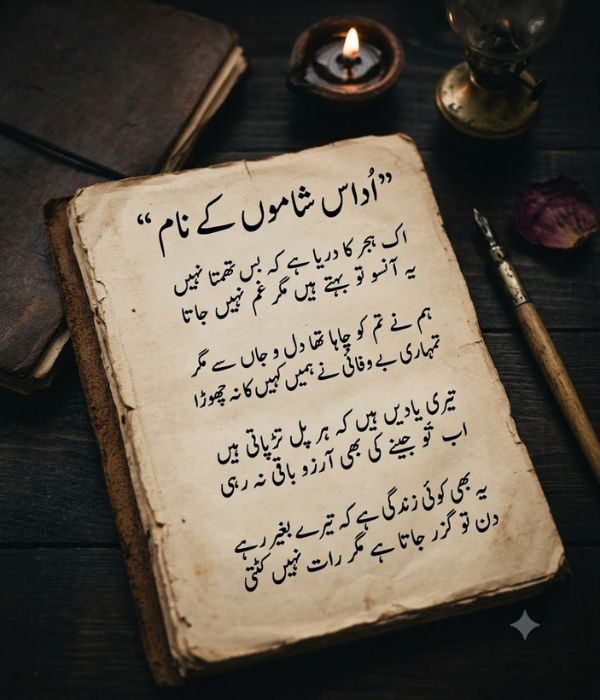 ”اُداس شاموں کے نام“
اک ہجر کا دریا ہے کہ بس تھمتا نہیں
یہ آنسو تو بہتے ہیں مگر غم نہیں جاتا
ہم نے تم کو چاہا تھا دل و جاں سے مگر
تمہاری بے وفائی نے ہمیں کہیں کا نہ چھوڑا
تیری یادیں ہیں کہ ہر پل تڑپاتی ہیں
اب تو جینے کی بھی آرزو باقی نہ رہی
یہ بھی کوئی زندگی ہے کہ تیرے بغیر رہے
دن تو گزر جاتا ہے مگر رات نہیں کٹتی